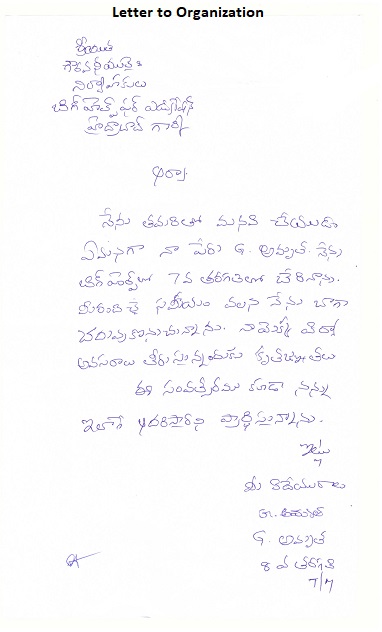 Letter to Organization
శ్రీయుత
గౌరవనీయులైన
నిర్వాహకులు
బిగ్ హెల్ప్ ఫర్ ఎడ్యుకేషన్
హైద్రాబాద్ గార్కి
ఆర్యా
నేను తమరితో మనవి చేయునది
ఏమనగా నా పేరు G. అమృత. నేను
బిగ్ హెల్ప్‌లో 7వ తరగతిలో చేరినాను.
మీరందించే సహాయం వలన నేను బాగా
చదువుకొనుచున్నాను. నా యొక్క విద్యా
అవసరాలు తీరుస్తున్నందుకు కృతజ్ఞతలు
ఈ సంవత్సరము కూడా నన్ను
ఇలాగే ఆదరిస్తారని ప్రార్థిస్తున్నాను.
ఇట్లు
మీ విధేయురాలు
G. అమృత
G. అమృత
8 వ తరగతి